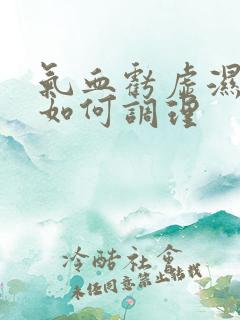 氣血虧虛濕
如何調理
冷酷社會
未經同意禁止轉載